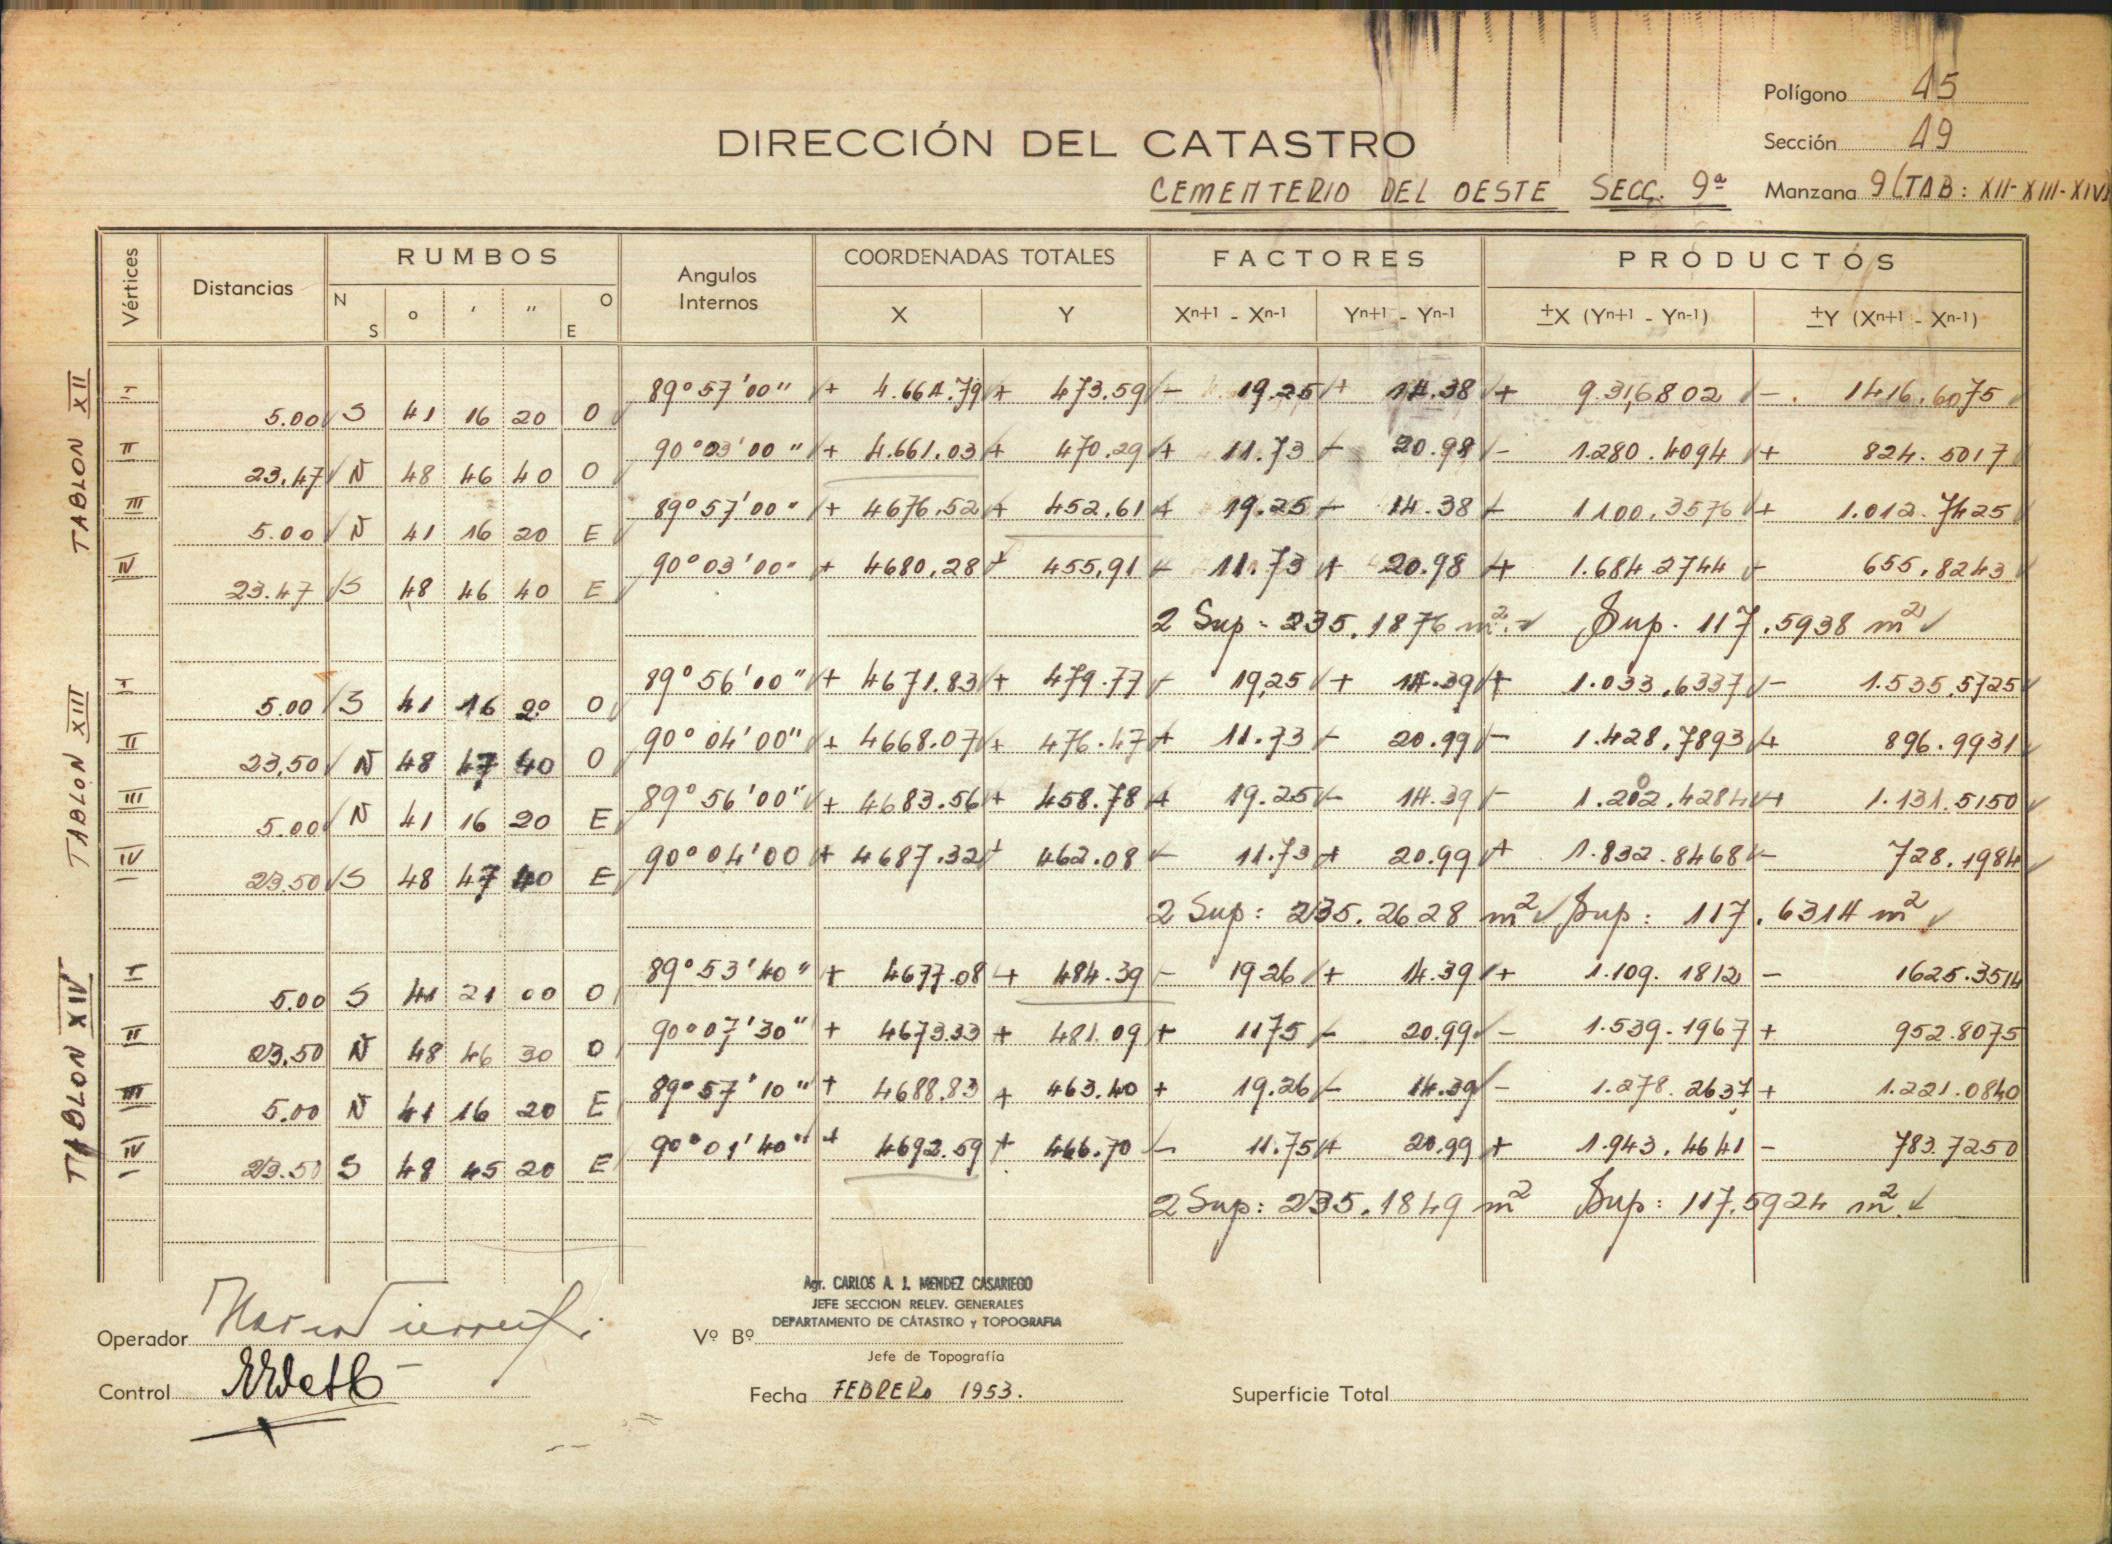 Polígono 15
DIRECCIÓN DEL CATASTRO
Sección 19
CEMENTERIO DEL OESTE SECC. 9ª
Manzana 9 (TAB: XII-XIII-XIV)
Vértices Distancias RUMBOS Angulos Internos COORDENADAS TOTALES FACTORES PRODUCTOS
N S ° ' " O E X Y Xn+1 - Xn-1 Yn+1 - Yn-1 ±X (Yn+1 - Yn-1) ±Y (Xn+1 - Xn-1)
TABLON XII
I 89°57'00" + 4.664.79 + 473.59 - 19.25 + 14.38 + 9.316802 - 1416.6075
5.00 S 41 16 20 O
II 90°03'00" + 4.661.03 + 470.29 + 11.73 - 20.98 - 1.280.4094 + 824.5017
23.47 N 48 46 40 O
III 89°57'00" + 4676.52 + 452.61 + 19.25 - 14.38 - 1100.3576 + 1.012.7425
5.00 N 41 16 20 E
IV 90°03'00" + 4680.28 + 455.91 - 11.73 + 20.98 + 1.684.2744 - 655.8243
23.47 S 48 46 40 E
2 Sup = 235.1876 m² Sup. 117.5938 m²
TABLON XIII
I 89°56'00" + 4671.83 + 479.77 - 19.25 + 14.39 + 1.033.6337 - 1.535.5725
5.00 S 41 16 20 O
II 90°04'00" + 4668.07 + 476.47 + 11.73 - 20.99 - 1.428.7893 + 896.9931
23.50 N 48 47 40 O
III 89°56'00" + 4683.56 + 458.78 + 19.25 - 14.39 - 1.202.4284 + 1.131.5150
5.00 N 41 16 20 E
IV 90°04'00 + 4687.32 + 462.08 - 11.73 + 20.99 + 1.832.8468 - 728.1984
23.50 S 48 47 40 E
2 Sup: 235.2628 m² Sup: 117.6314 m²
TABLON XIV
I 89°53'40" + 4677.08 + 484.39 - 19.26 + 14.39 + 1.109.1812 - 1625.3514
5.00 S 41 21 00 O
II 90°07'30" + 4673.33 + 481.09 + 11.75 - 20.99 - 1.539.1967 + 952.8075
23.50 N 48 46 30 O
III 89°57'10" + 4688.83 + 463.40 + 19.26 - 14.39 - 1.278.2637 + 1.221.0840
5.00 N 41 16 20 E
IV 90°01'40" + 4692.59 + 466.70 - 11.75 + 20.99 + 1.943.4641 - 783.7250
23.50 S 48 45 20 E
2 Sup: 235.1849 m² Sup: 117.5924 m²
Agr. CARLOS A. J. MENDEZ CASARIEGO
JEFE SECCION RELEV. GENERALES
DEPARTAMENTO DE CATASTRO y TOPOGRAFIA
Operador
Vº Bº
Jefe de Topografía
Control
Fecha FEBRERO 1953.
Superficie Total